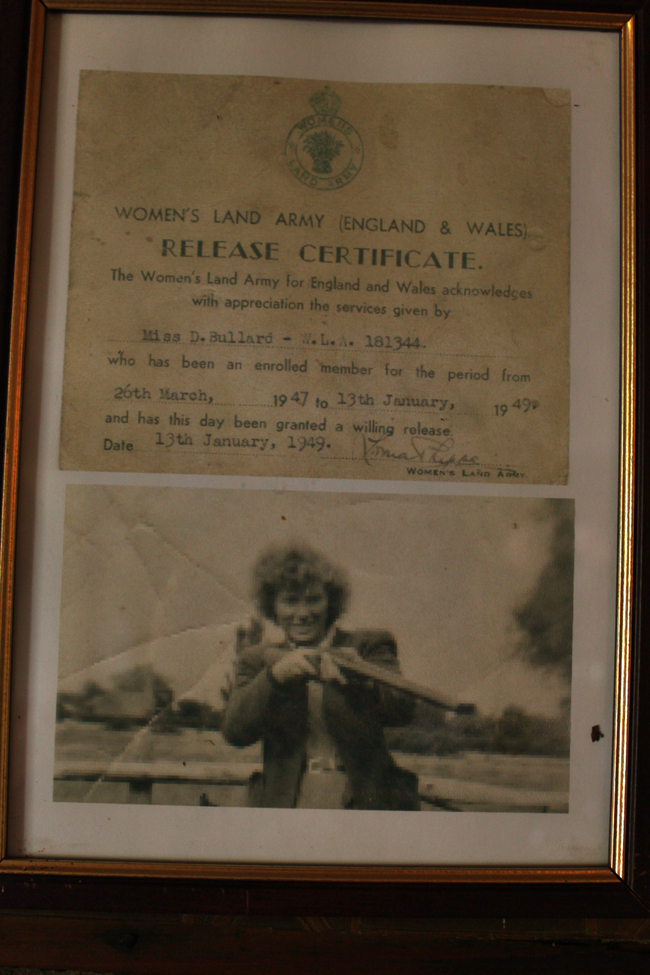 WOMEN'S
LAND ARMY
WOMEN'S LAND ARMY (ENGLAND & WALES)
RELEASE CERTIFICATE.
The Women's Land Army for England and Wales acknowledges
with appreciation the services given by
Miss D.Bullard - W.L.A. 181344.
who has been an enrolled member for the period from
26th March, 1947 to 13th January, 1949.
and has this day been granted a willing release.
Date 13th January, 1949.
WOMEN'S LAND ARMY.